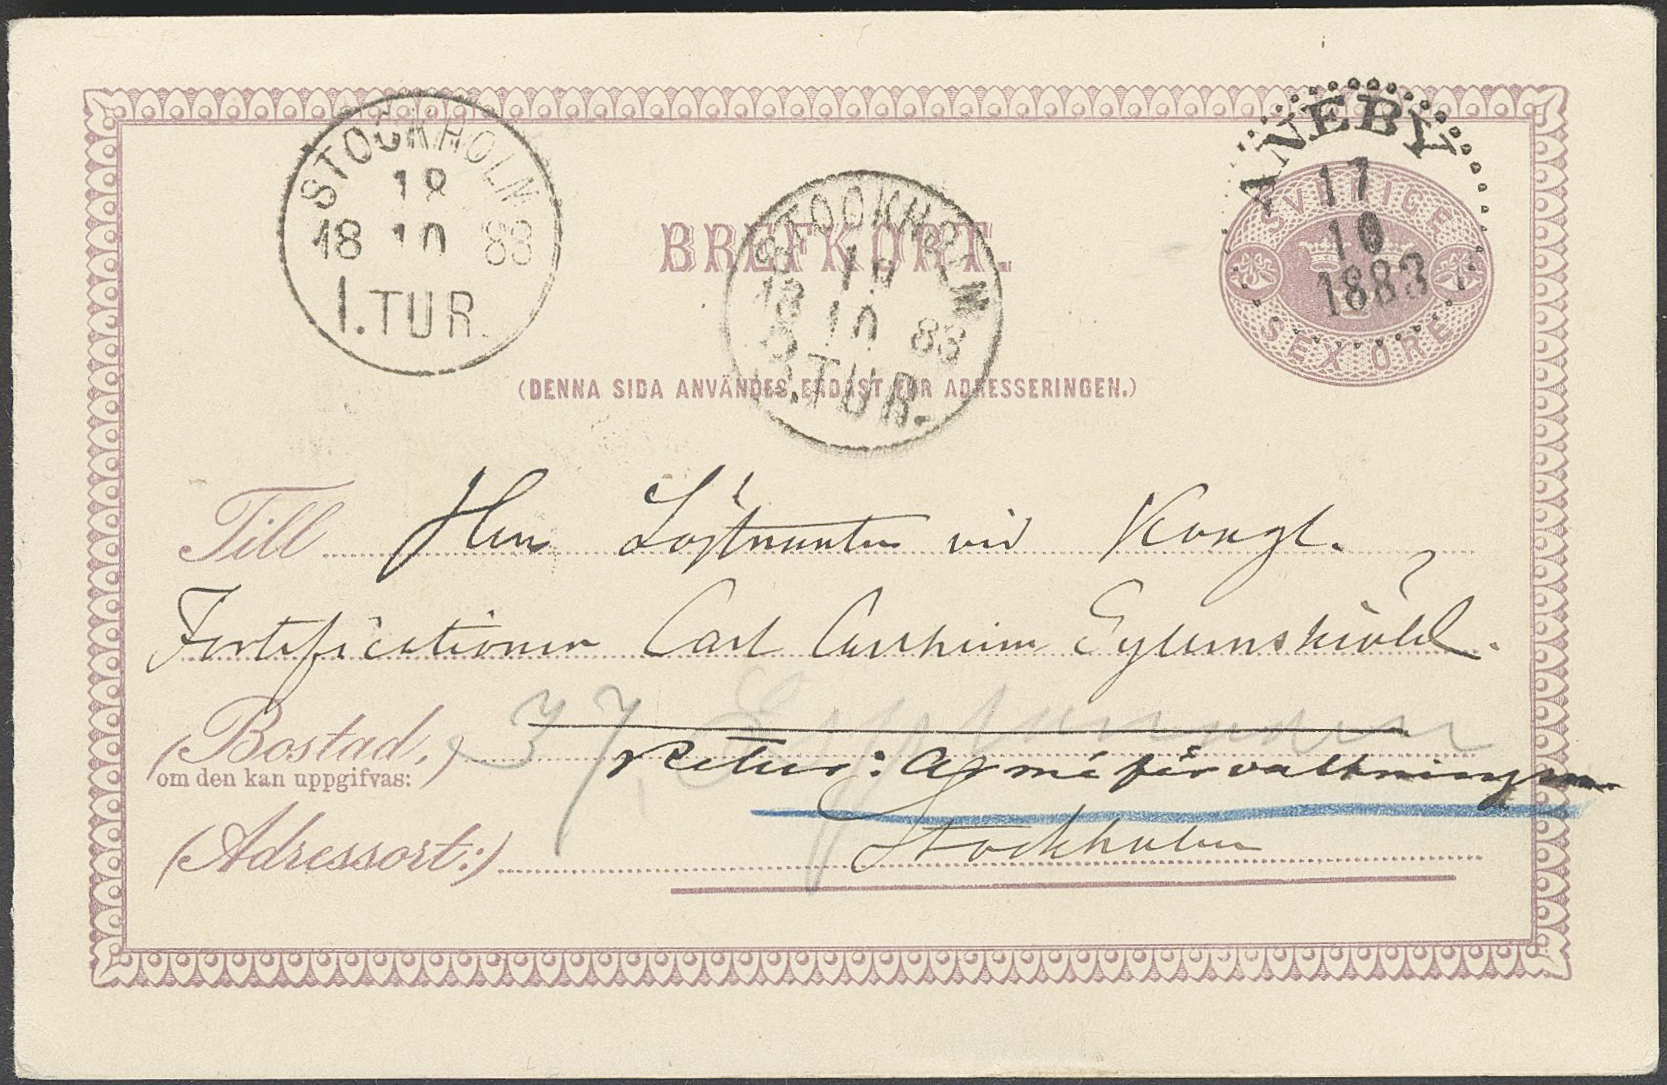 STOCKHOLM
18
18 10 83
1.TUR.
STOCKHOLM
18 10 83
TUR.
ANEBY
17
10
1883
SVERIGE
SEX ÖRE
BREFKORT.
(DENNA SIDA ANVÄNDES ENDAST FÖR ADRESSERINGEN.)
Till Herr Löjtnanten vid Kongl.
Fortificationen Carl Cassheim Gyllensköld.
(Bostad,) 37,
om den kan uppgifvas:
Retur: Arméförvaltningen
(Adressort:) Stockholm